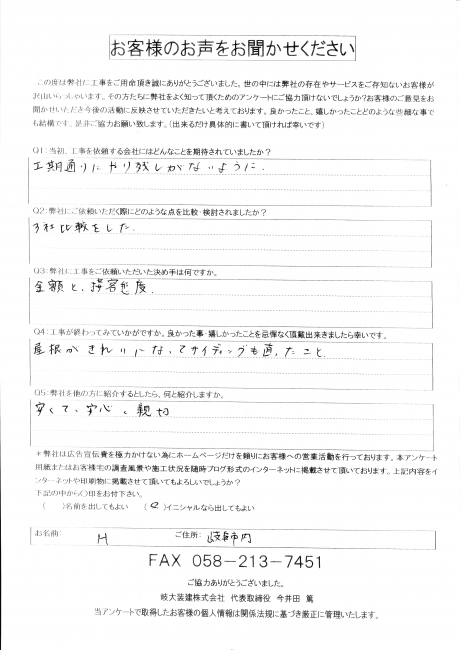 お客様のお声をお聞かせください
この度は弊社に工事をご用命頂き誠にありがとうございました。世の中には弊社の存在やサービスをご存知ないお客様が
沢山いらっしゃいます。その方たちに弊社をよく知って頂くためのアンケートにご協力頂けないでしょうか?お客様のご意見をお
聞かせいただき今後の活動に反映させていただきたいと考えております。良かったこと、嬉しかったことどのような些細な事で
も結構です、是非ご協力お願い致します。(出来るだけ具体的に書いて頂ければ幸いです)
Q1:当初、工事を依頼する会社にはどんなことを期待されていましたか?
工期通りにやり残しがないように.
Q2:弊社にご依頼いただく際にどのような点を比較・検討されましたか?
3社比較をした.
Q3:弊社に工事をご依頼いただいた決め手は何ですか。
金額と、接客態度.
Q4:工事が終わってみていかがですか。良かった事・嬉しかったことを忌憚なく頂戴出来きましたら幸いです。
屋根がきれいになってサイディングも直ったこと.
Q5:弊社を他の方に紹介するとしたら、何と紹介しますか。
安くて、安心、親切
＊弊社は広告宣伝費を極力かけない為にホームページだけを頼りにお客様への営業活動を行っております。本アンケート
用紙またはお客様宅の調査風景や施工状況を随時ブログ形式のインターネットに掲載させて頂いております。上記内容をイ
ンターネットや印刷物に掲載させて頂いてもよろしいでしょうか?
下記の中から○印をお付下さい。
( )名前を出してもよい (○)イニシャルなら出してもよい
お名前: H ご住所: 岐阜市内
FAX 058-213-7451
ご協力ありがとうございました。
岐大装建株式会社 代表取締役 今井田 篤
当アンケートで取得したお客様の個人情報は関係法規に基づき厳正に管理いたします。